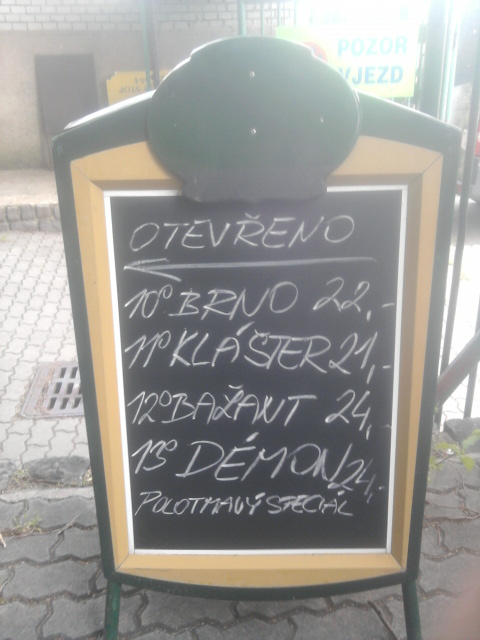 POZOR
VJEZD
OTEVŘENO
10° BRNO 22,-
11° KLÁŠTER 21,-
12° BAŽANT 24,-
13° DÉMON 24,-
POLOTMAVÝ SPECIÁL